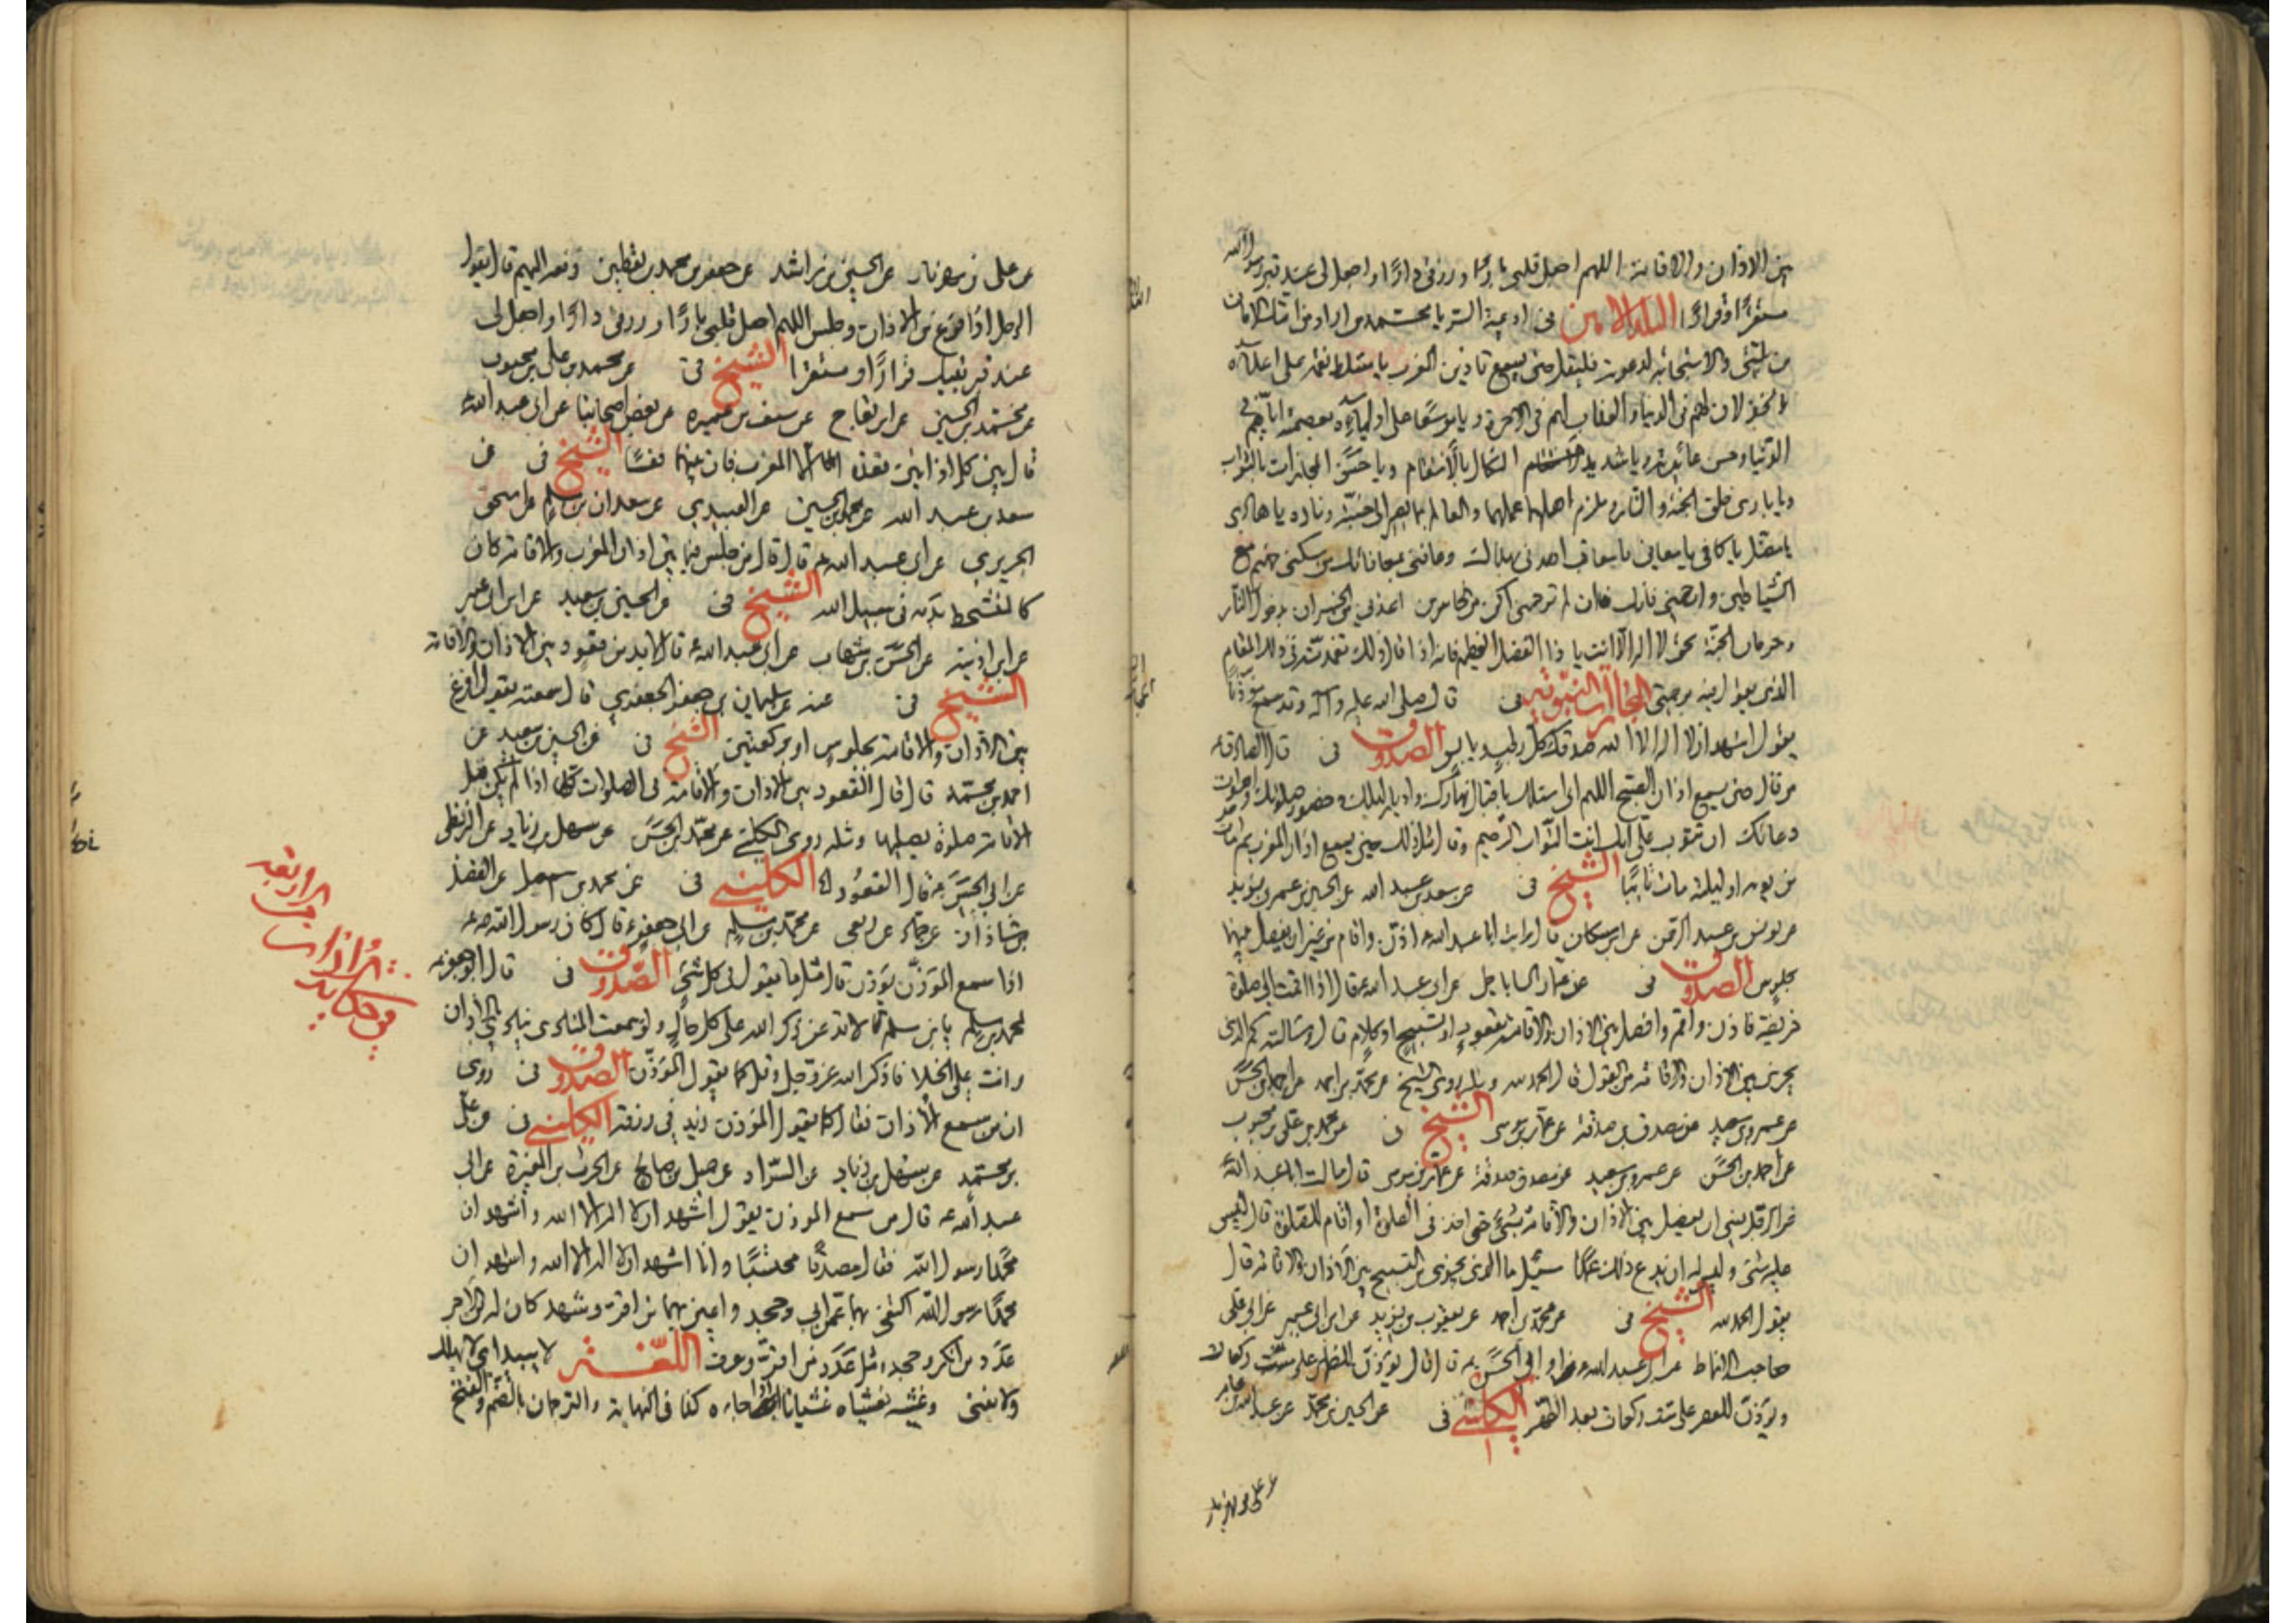 بين الاذان والاقامة اللهم اجعل قلبي بارا ورزقي دارا واجعل لي عند قبر رسول الله
مستقرا وقرارا البلد الامين في ادعية السر يا محمد من اراد من امتك الامان
من بليتي والاستجابة لدعوته فليقل حين يسمع تاذين المغرب يا مسلط نقمه على اعدائه
بالخذلان لهم في الدنيا والعذاب لهم في الاخرة ويا موسعا على اوليائه بعصمته اياهم في
الدنيا وحسن عائدته ويا شديد النكال بالانتقام ويا حسن المجازات بالثواب
ويا بارئ خلق الجنة والنار وملزم اهلهما عملهما والعالم بمن يصير الى جنته وناره يا هادي
يا مضل يا كافي يا معافي يا معاقب اهدني بهداك وعافني بمعافاتك من سكنى جهنم مع
الشياطين وارحمني فانك ان لم ترحمني اكن من الخاسرين اعذني من الخسران بدخول النار
وحرمان الجنة بحق لا اله الا انت يا ذا الفضل العظيم فانه اذا قال ذلك تغمدته في ذلك المقام
الذي يقول فيه برحمتي المجازات النبوية في قال صلى الله عليه وآله وقد سمع مؤذنا
يقول اشهد ان لا اله الا الله صدقك كل رطب ويابس الصدوق في قال الصادق ع
من قال حين يسمع اذان الصبح اللهم اني اسئلك باقبال نهارك وادبار ليلك وحضور صلواتك واصوات
دعائك ان تتوب علي انك انت التواب الرحيم وقال مثل ذلك حين يسمع اذان المغرب ثم مات
من يومه او ليلته مات تائبا الشيخ في عن سعد بن عبد الله عن الحسين بن عمر بن يزيد
عن يونس بن عبد الرحمن عن ابن مسكان قال رايت ابا عبد الله ع اذن واقام من غير ان يفصل بينهما
بجلوس الصدوق في عن عمار الساباطي عن ابي عبد الله ع قال اذا قمت الى صلوة
فريضة فاذن واقم وافصل بين الاذان والاقامة بقعود او تسبيح او كلام قال وسالته كم الذي
يجزي بين الاذان والاقامة من القول قال الحمد لله وروى الشيخ عن محمد بن احمد عن احمد بن الحسن
عن عمرو بن سعيد عن مصدق بن صدقة عن عمار بن موسى الشيخ في عن محمد بن علي بن محبوب
عن احمد بن الحسن عن عمرو بن سعيد عن مصدق بن صدقة عن عمار بن موسى قال سالت ابا عبد الله ع
عن الرجل ينسى ان يفصل بين الاذان والاقامة بشيء حتى اخذ في الصلوة او اقام للصلوة قال ليس
عليه شيء وليس له ان يدع ذلك عمدا سئل ما الذي يجزي من التسبيح بين الاذان والاقامة قال
يقول الحمد لله الشيخ في عن محمد بن احمد عن يعقوب بن يزيد عن ابن ابي عمير عن ابي علي
صاحب الانماط عن ابي عبد الله او ابي الحسن ع قال قال يؤذن للظهر على ست ركعات
ويؤذن للعصر على ست ركعات بعد الظهر الكليني في عن الحسين بن محمد عن عبد الله بن عامر
عن علي بن مهزيار
عن علي بن مهزيار عن الحسين بن راشد عن جعفر بن محمد بن يقطين رفعه اليهم قال يقول
الرجل اذا فرغ من الاذان وجلس اللهم اجعل قلبي بارا ورزقي دارا واجعل لي
عند قبر نبيك قرارا ومستقرا الشيخ في عن محمد بن علي بن محبوب
عن محمد بن الحسين عن ابن بقاح عن سيف بن عميرة عن بعض اصحابنا عن ابي عبد الله ع
قال بين كل اذانين قعدة الا المغرب فان بينهما نفسا الشيخ في عن
سعد بن عبد الله عن محمد بن الحسين عن العبيدي عن سعدان بن مسلم عن اسحق
الجريري عن ابي عبد الله ع قال قال من جلس فيما بين اذان المغرب والاقامة كان
كالمتشحط بدمه في سبيل الله الشيخ في عن الحسين بن سعيد عن ابن ابي عمير
عن ابن اذينة عن الحسن بن شهاب عن ابي عبد الله ع قال لا بد من قعود بين الاذان والاقامة
الشيخ في عنه عن سليمان بن جعفر الجعفري قال سمعته يقول افرغ
بين الاذان والاقامة بجلوس او بركعتين الشيخ في عن الحسين بن سعيد عن
احمد بن محمد قال قال القعود بين الاذان والاقامة في الصلوات كلها اذا لم يكن قبل
الاقامة صلوة يصليها ومثله روى الكليني عن محمد بن الحسن عن سهل بن زياد عن البزنطي
عن ابي الحسن ع قال القعود الكليني في عن محمد بن اسمعيل عن الفضل
بن شاذان عن حماد عن ربعي عن محمد بن مسلم عن ابي جعفر ع قال كان رسول الله ص
اذا سمع المؤذن يؤذن قال مثل ما يقول في كل شيء الصدوق في قال ابو جعفر ع
لمحمد بن مسلم يا بن مسلم لا تدعن ذكر الله على كل حال ولو سمعت المنادي ينادي بالاذان
وانت على الخلاء فاذكر الله عز وجل وقل كما يقول المؤذن الصدوق في روي
ان من سمع الاذان فقال كما يقول المؤذن زيد في رزقه الكليني في عن علي
بن محمد عن سهل بن زياد عن السراد عن جميل بن صالح عن الحرث بن المغيرة عن ابي
عبد الله ع قال من سمع المؤذن يقول اشهد ان لا اله الا الله واشهد ان
محمدا رسول الله فقال مصدقا محتسبا وانا اشهد ان لا اله الا الله واشهد ان
محمدا رسول الله اكتفي بهما عمن ابى وجحد واعين بهما من اقر وشهد كان له من الاجر
عدد من انكر وجحد ومثل عدد من اقر وعرف اللغة لا يبيد اي لا يهلك
ولا يفنى وغشيه يغشاه غشيانا اذا جاءه كذا في النهاية والترجمان بالضم والفتح